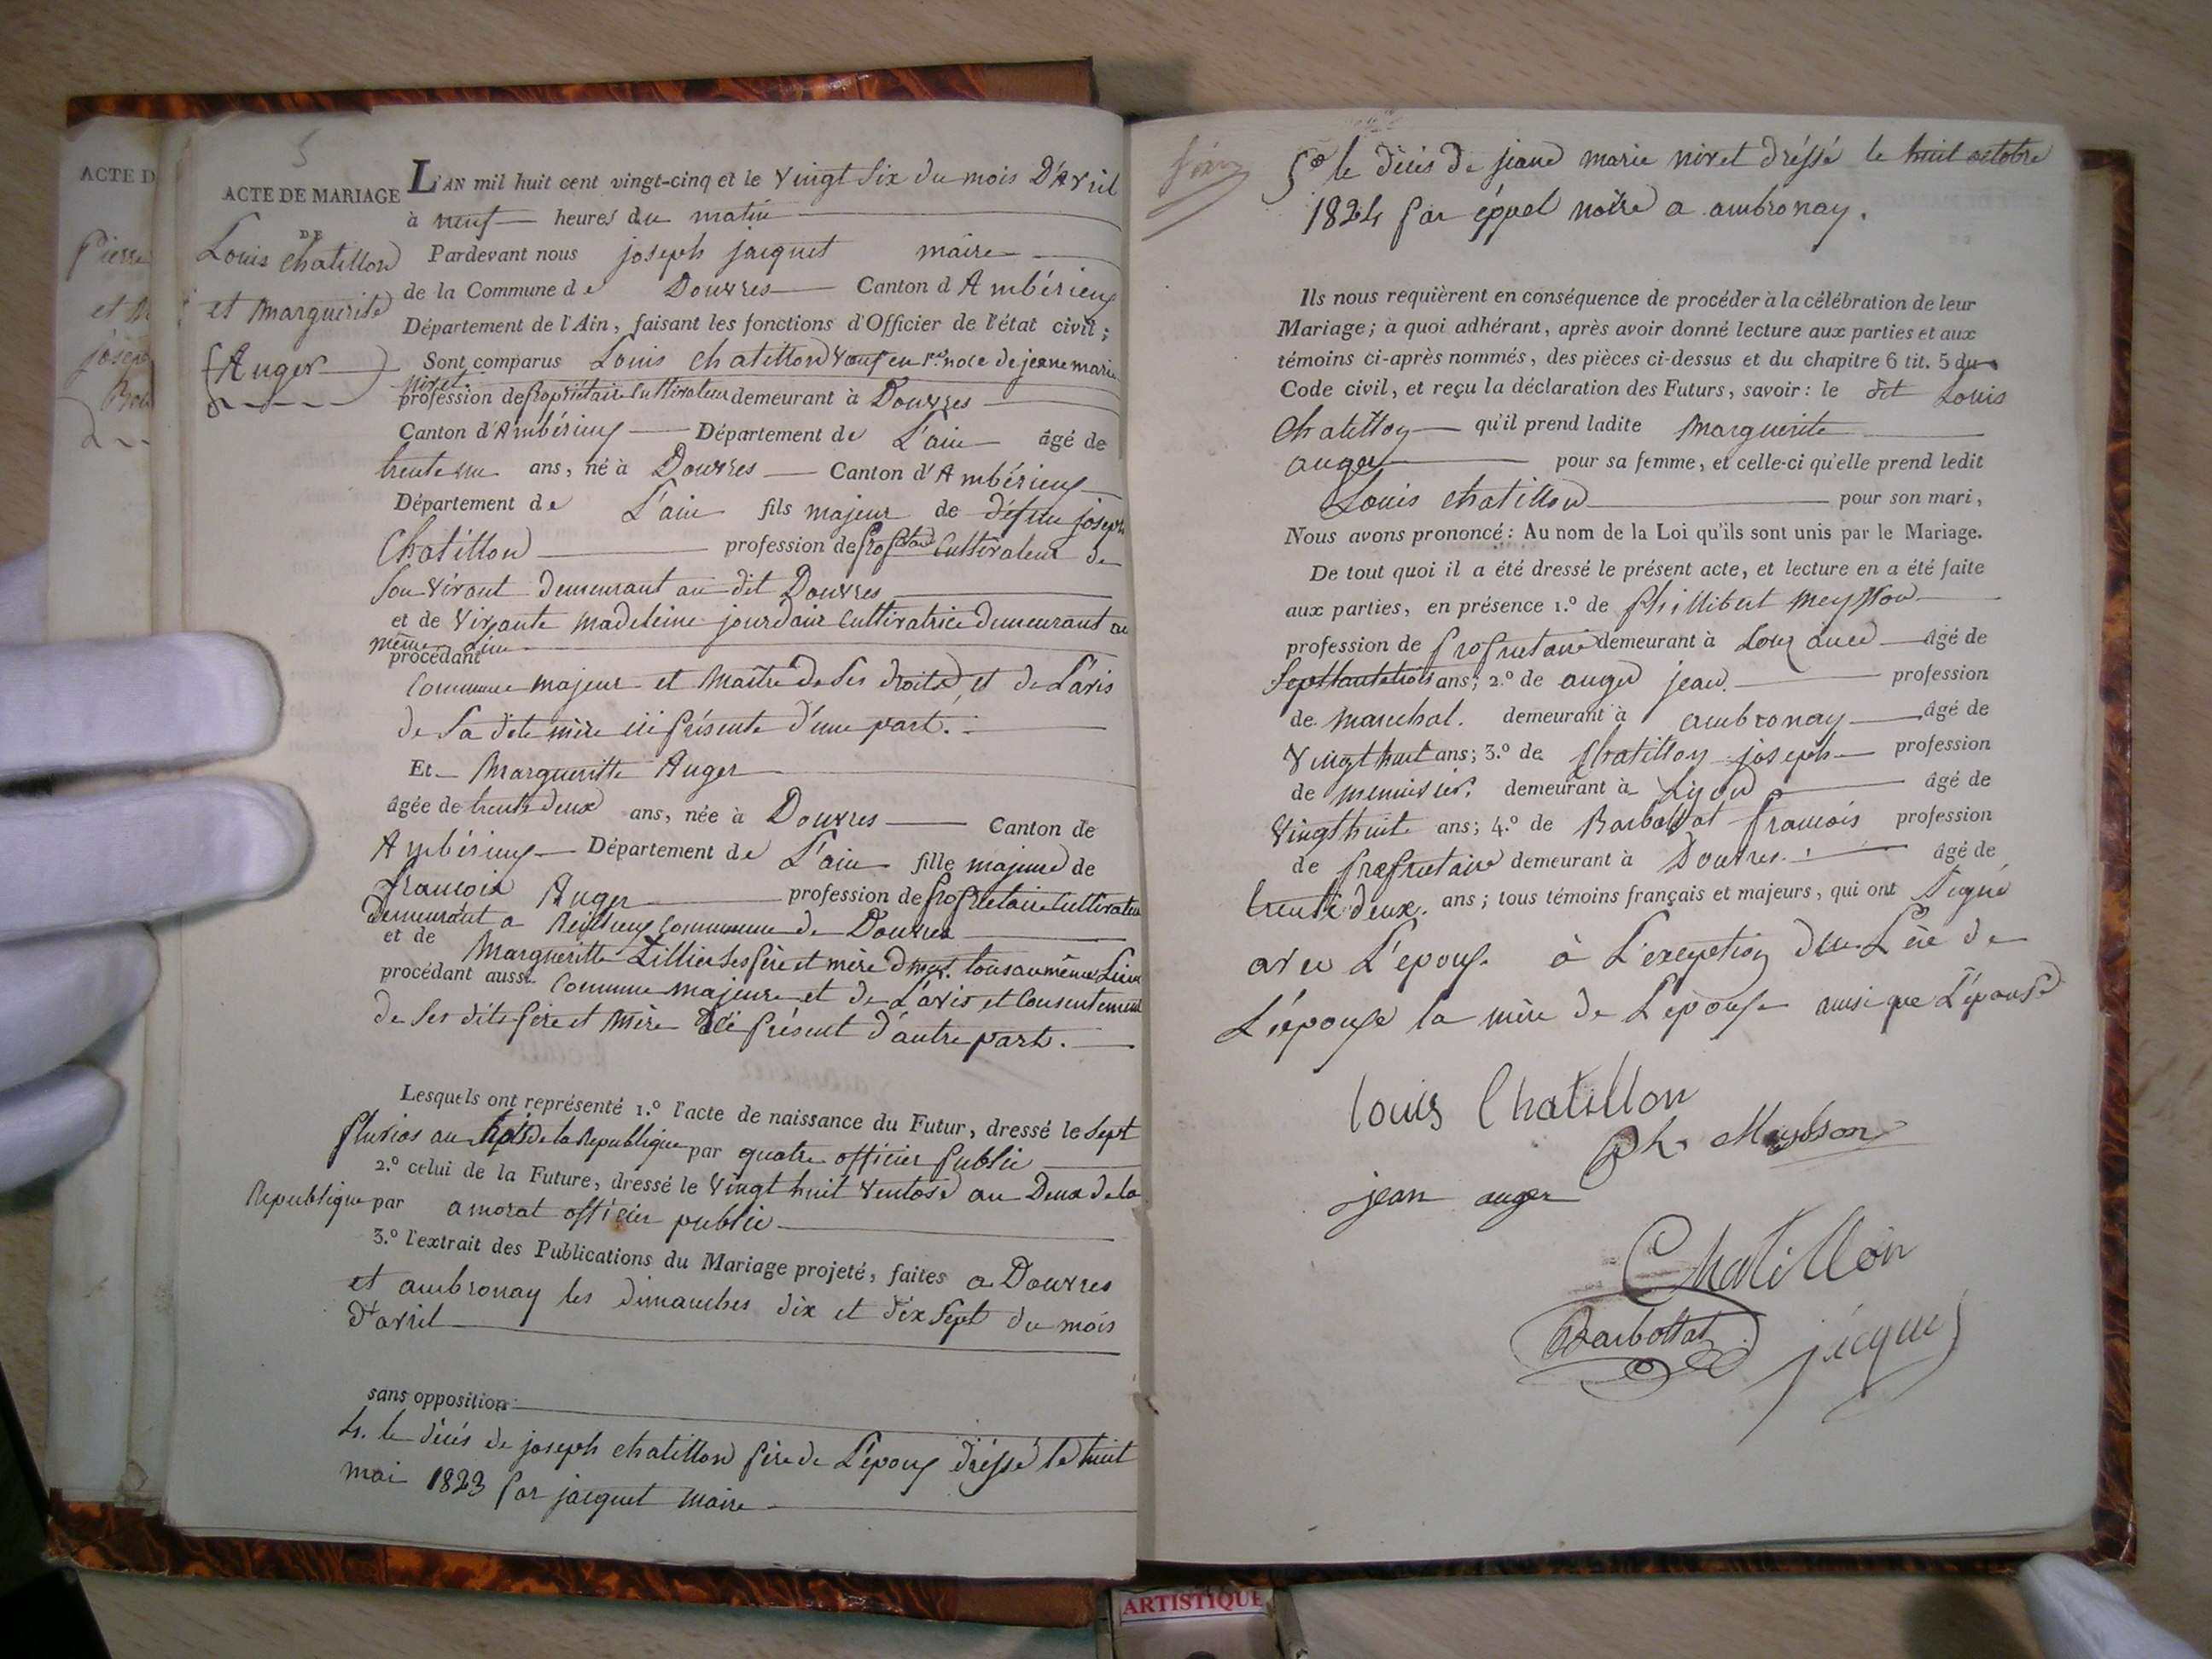 ACTE D
Pierre
et M
joseph
5
ACTE DE MARIAGE
DE
Louis Chatillon
et Marguerite
(Auger)
L'AN mil huit cent vingt-cinq et le Vingt Six du mois D'Avril
à neuf heures du matin
Pardevant nous joseph jacquet maire
de la Commune de Douvres Canton d'Ambérieux
Département de l'Ain, faisant les fonctions d'Officier de l'état civil;
Sont comparus Louis Chatillon Veuf en 1re noce de jeane marie
nivet
profession de Propriétaire Cultivateur demeurant à Douvres
Canton d'Ambérieux Département de L'ain âgé de
trente un ans, né à Douvres Canton d'Ambérieux
Département de L'ain fils majeur de défun joseph
Chatillon profession de Cultivateur de
Son Vivant demeurant au dit Douvres
et de Vivante Madeleine jourdain Cultivatrice demeurant au
même Lieu
procédant
Comme majeur et Maître de Ses droits et de L'avis
de Sa dite mère ici présente d'une part.
Et Margueritte Auger
âgée de trente deux ans, née à Douvres Canton de
Ambérieux Département de L'ain fille majeure de
francois Auger profession de Proprietaire Cultivateur
Demeurant a Commune de Douvres
et de Margueritte Lillier Ses père et mère dmt. tous au même Lieu
procédant aussi Comme majeure et de L'avis et Consentement
de Ses dits père et Mère ici présent d'autre part.
Lesquels ont représenté 1.º l'acte de naissance du Futur, dressé le Sept
pluvios an de la Republique par quatre officier public
2.º celui de la Future, dressé le Vingt huit Ventose an Deux de la
Republique par amorat officier public
3.º l'extrait des Publications du Mariage projeté, faites a Douvres
et ambronay les dimanches dix et dix Sept du mois
d'avril
sans opposition
4. le décés de joseph chatillon père de L'époux dréssé le huit
mai 1823 par jacquet maire
5º le décés de jeane marie nivet dréssé le huit octobre
1824 par a ambronay.
Ils nous requièrent en conséquence de procéder à la célébration de leur
Mariage; à quoi adhérant, après avoir donné lecture aux parties et aux
témoins ci-après nommés, des pièces ci-dessus et du chapitre 6 tit. 5 du
Code civil, et reçu la déclaration des Futurs, savoir: le dit Louis
Chatillon qu'il prend ladite Marguerite
auger pour sa femme, et celle-ci qu'elle prend ledit
Louis chatillon pour son mari,
Nous avons prononcé: Au nom de la Loi qu'ils sont unis par le Mariage.
De tout quoi il a été dressé le présent acte, et lecture en a été faite
aux parties, en présence 1.º de phillibert meysson
profession de proprietaire demeurant à âgé de
ans; 2.º de auger jean. profession
de marichal. demeurant à ambronay âgé de
Vingt huit ans; 3.º de Chatillon joseph profession
de menuisier. demeurant à Lyon âgé de
Vingt huit ans; 4.º de Barbottat francois profession
de proprietaire demeurant à Douvres. âgé de
trente deux. ans; tous témoins français et majeurs, qui ont Signé
avec L'epoux à L'exception du Père de
L'épouse la mère de L'épouse ainsi que L'épouse
louis Chatillon
Ph. Meysson
jean auger
Chatillon
Barbottat
jacquet
ARTISTIQUE